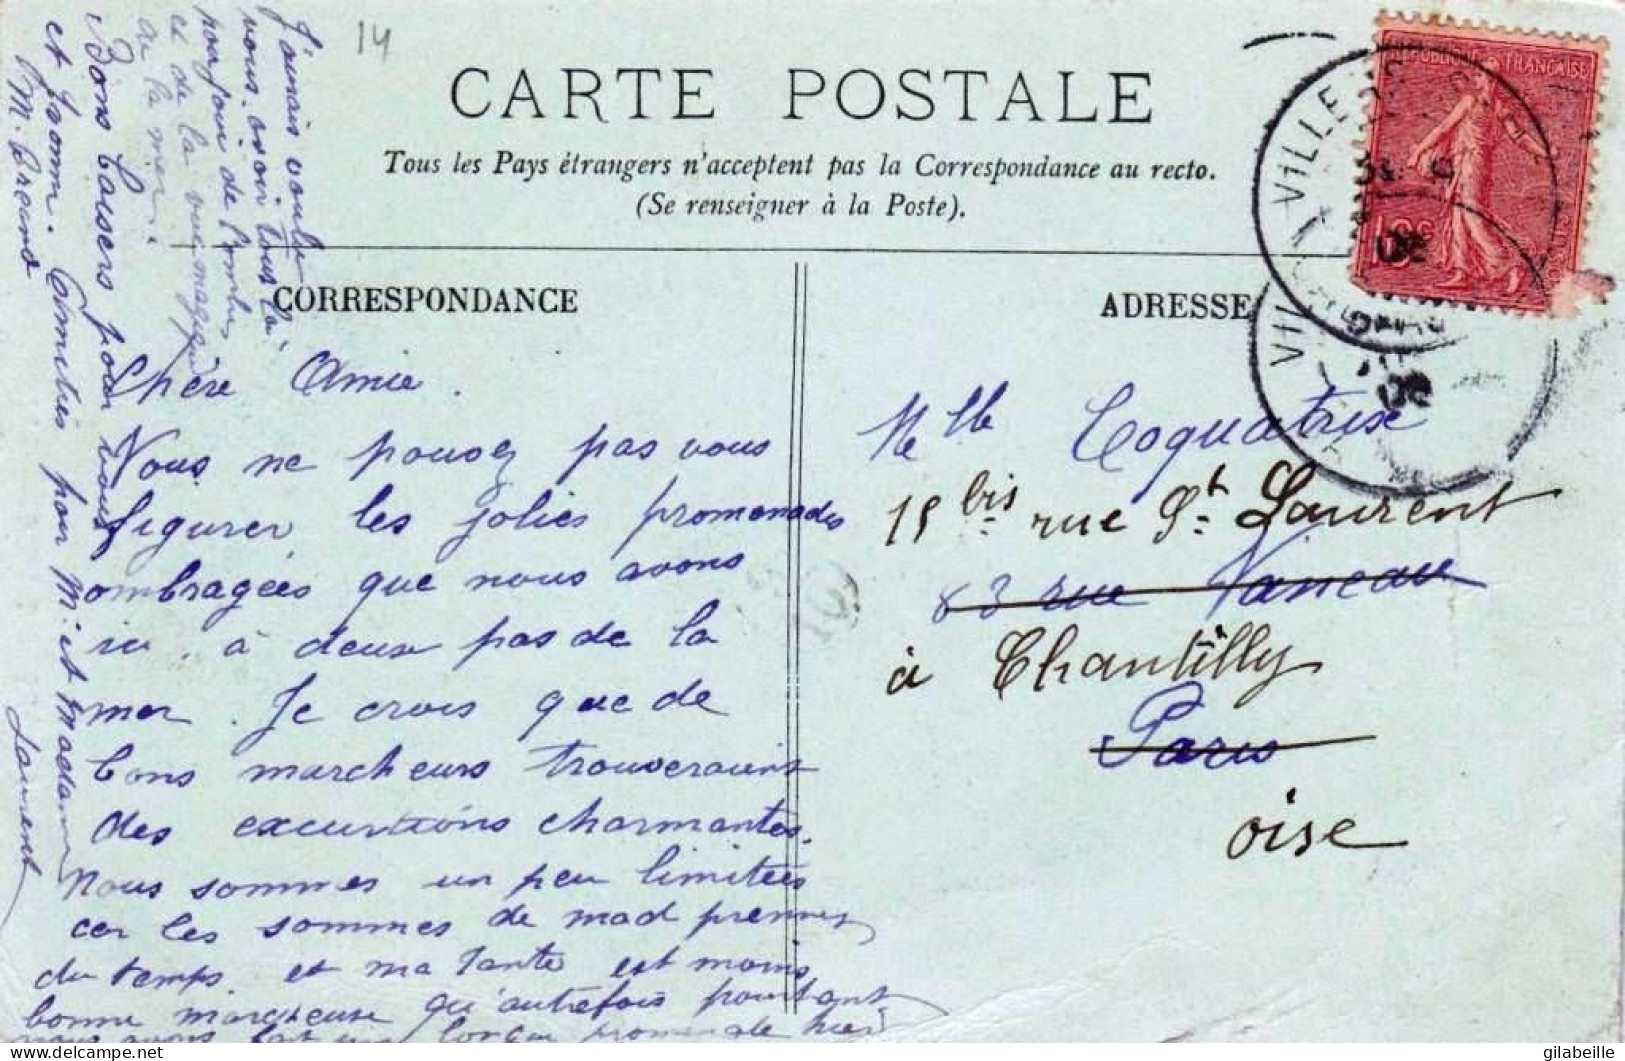 14
CARTE POSTALE
Tous les Pays étrangers n'acceptent pas la Correspondance au recto.
(Se renseigner à la Poste).
RÉPUBLIQUE FRANÇAISE
10c
VILLE
CORRESPONDANCE
ADRESSE
Chère Amie.
Vous ne pouvez pas vous
figurer les jolies promenades
ombragées que nous avons
ici, à deux pas de la
mer. Je crois que de
bons marcheurs trouveraient
des excursions charmantes.
Nous sommes un peu limitées
car les sommes de mad prennent
du temps et ma tante est moins
bonne marcheuse qu'autrefois pourtant
nous avons fait une longue promenade hier
J'aurais voulu
vous avoir tous là
pour jouir de l'ombre
et de la vue magique
de la mer.
Bons baisers pour vous
et Amitiés pour M. et Madame
Laurent
M.
Melle Coquatrix
15 bis rue St Laurent
83 rue Vaneau
à Chantilly
Paris
Oise
delcampe.net
gilabeille